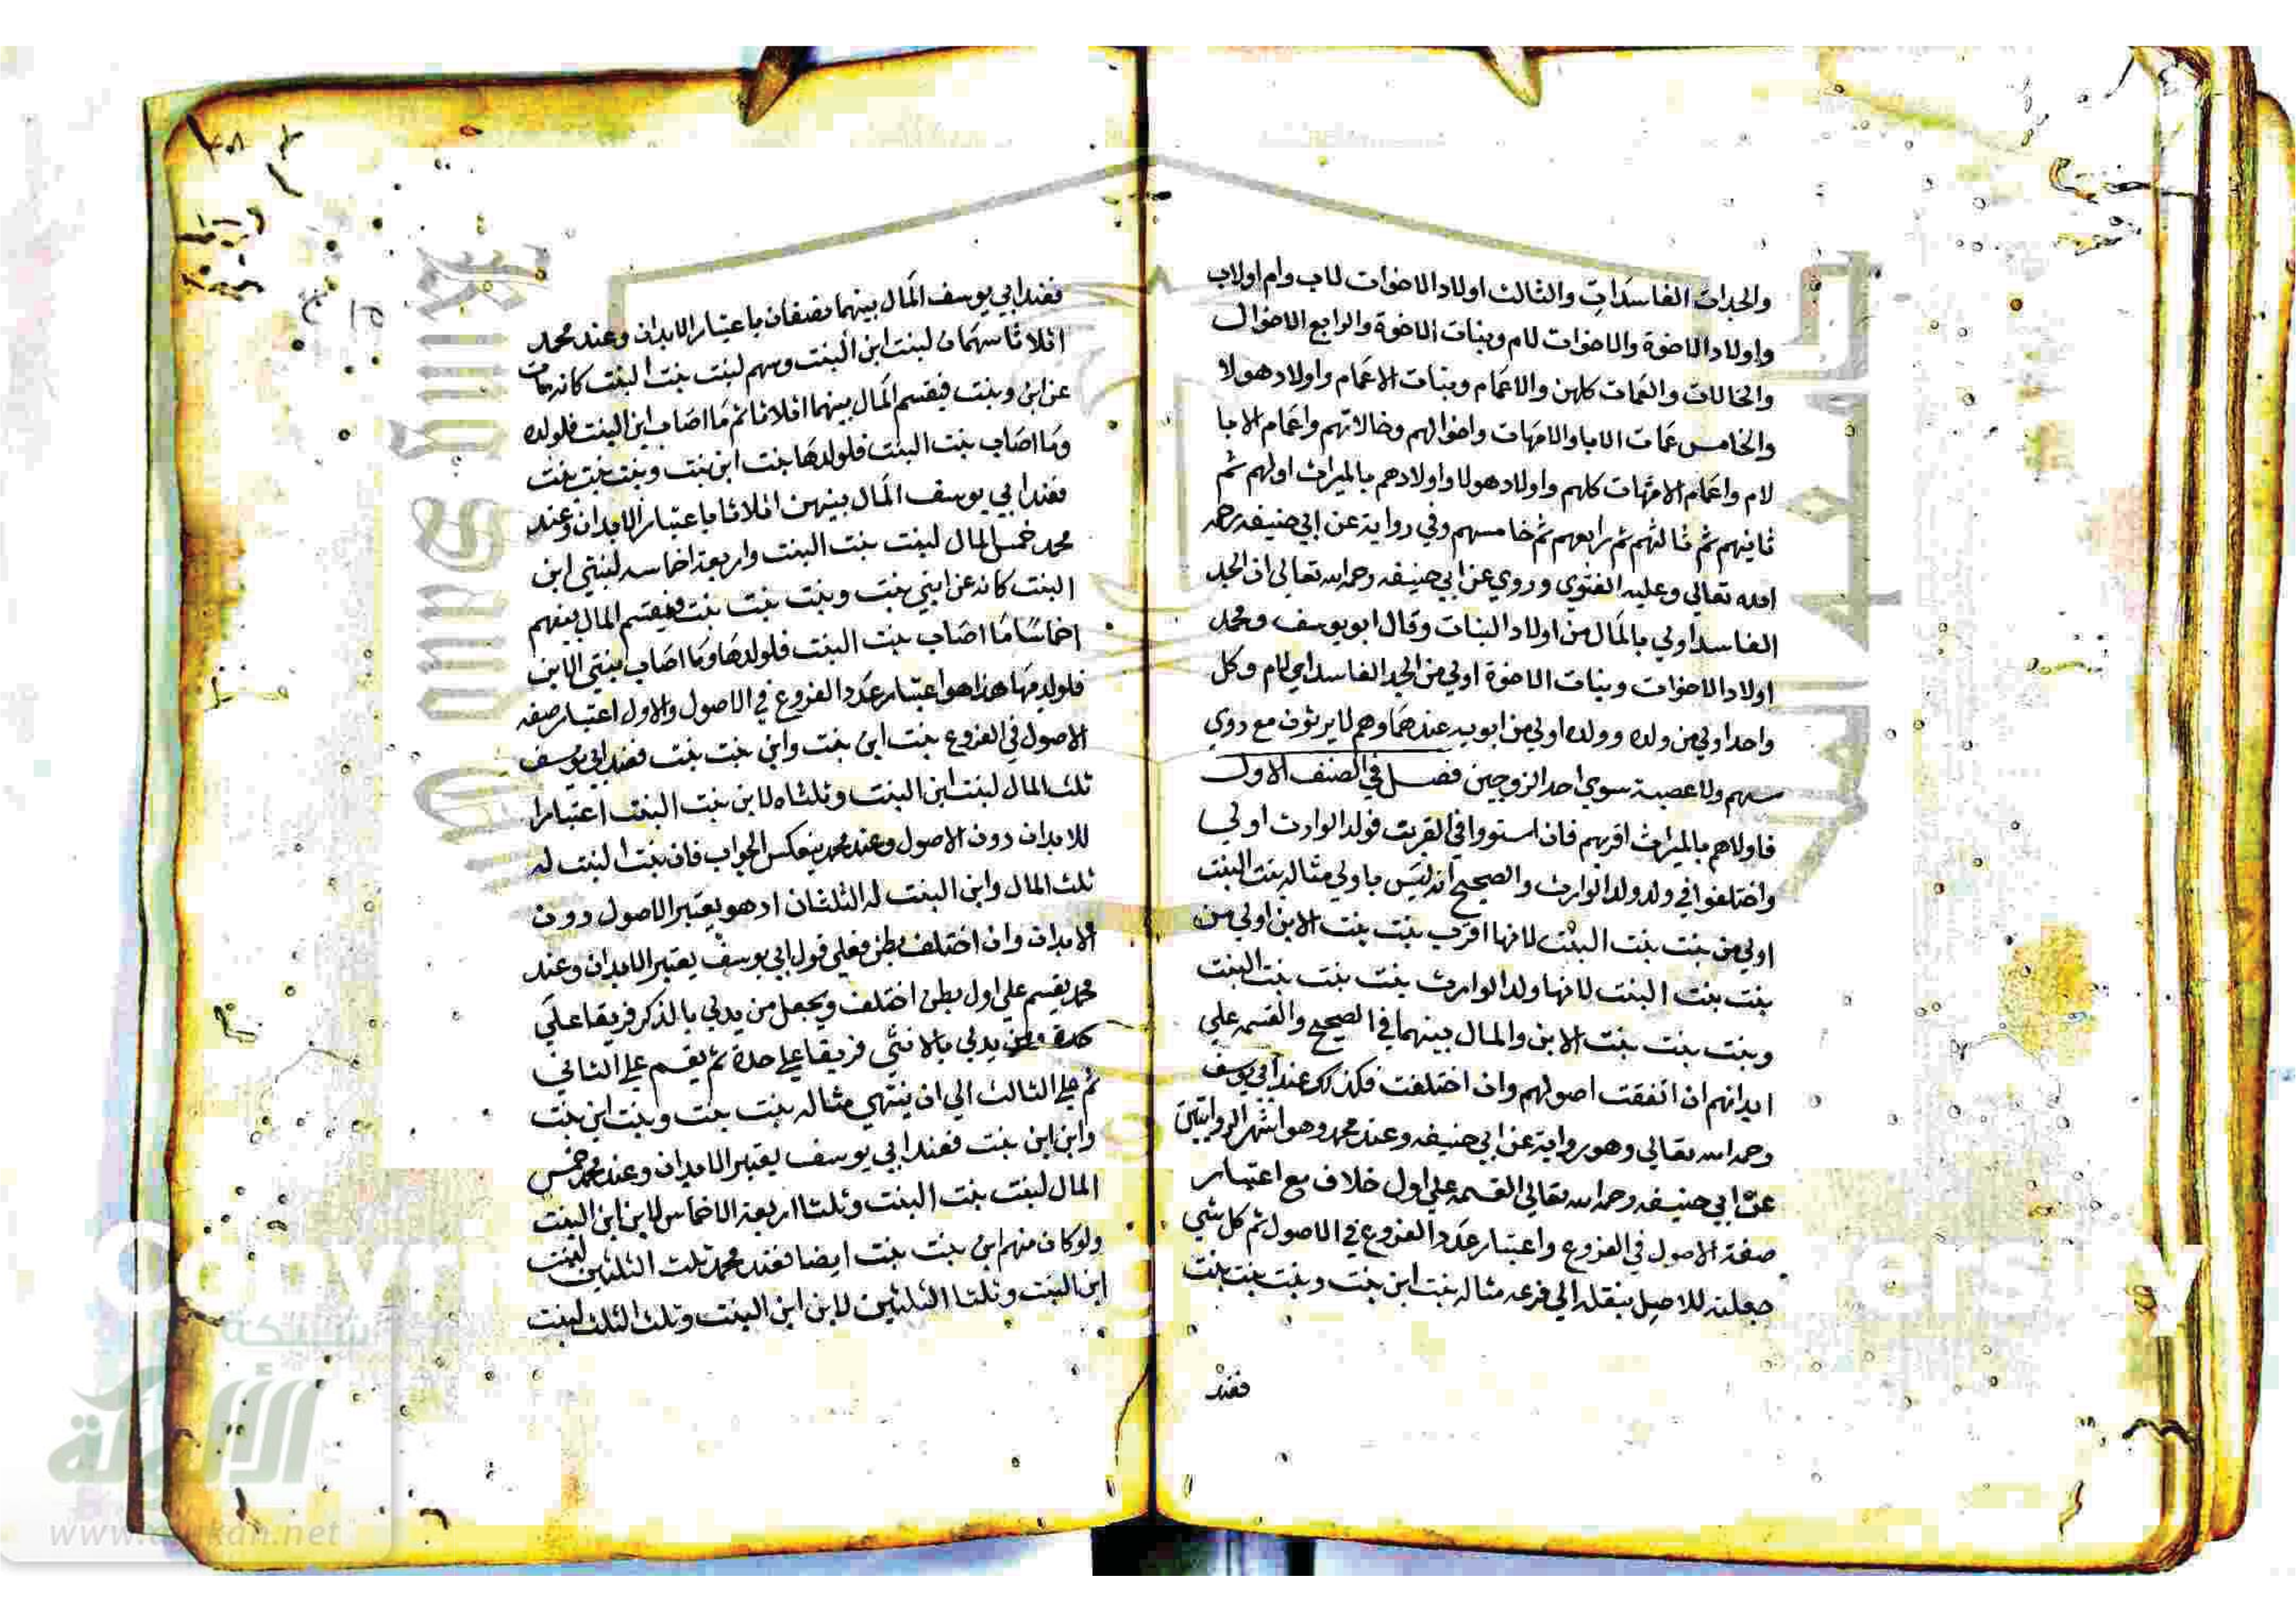 والجدات الفاسدات والثالث اولاد الاخوات لاب وام اولاب
واولاد الاخوة والاخوات لام وبنات الاخوة والرابع الاخوال
والخالات والعمات كلهن والاعمام وبنات الاعمام واولاد هولا
والخامس عمات الابا والامهات واخوالهم وخالاتهم واعمام الابا
لام واعمام الامهات كلهم واولاد هولا واولادهم بالميراث اولهم ثم
ثانيهم ثم ثالثهم ثم رابعهم ثم خامسهم وفي رواية عن ابي حنيفه رحمه
الله تعالى وعليه الفتوي وروي عن ابي حنيفه رحمه الله تعالى ان الجد
الفاسد اولي بالمال من اولاد البنات وقال ابو يوسف ومحمد
اولاد الاخوات وبنات الاخوة اولي من الجد الفاسد ابي لام وكل
واحد اولي من ولده وولده اولي من ابويه عندهما وهم لا يرثون مع ذوي
سهم ولا عصبة سوي احد الزوجين فصل في الصنف الاول
فاولاهم بالميراث اقربهم فان استووا في القرب فولد الوارث اولي
واختلفوا في ولد ولد الوارث والصحيح انه ليس باولي مثاله بنت البنت
اولي من بنت بنت البنت لانها اقرب بنت بنت الابن اولي من
بنت بنت البنت لانها ولد الوارث بنت بنت بنت البنت
وبنت بنت بنت الابن والمال بينهما في الصحيح والقسمه علي
ابدانهم ان اتفقت اصولهم وان اختلفت فكذلك عند ابي يوسف
رحمه الله تعالى وهو رواية عن ابي حنيفه وعند محمد وهو اشهر الروايتين
عن ابي حنيفه رحمه الله تعالى القسمه علي اول خلاف مع اعتبار
صفة الاصول في الفروع واعتبار عدد الفروع في الاصول ثم كل شي
جعلته للاصل ينقله الي فرعه مثاله بنت ابن بنت وبنت بنت بنت
فعند
فعند ابي يوسف المال بينهما نصفان باعتبار الابدان وعند محمد
اثلاثا سهمان لبنت ابن البنت وسهم لبنت بنت البنت كانه مات
عن ابن وبنت فيقسم المال بينهما اثلاثا ثم ما اصاب ابن البنت فلولده
وما اصاب بنت البنت فلولدها بنت ابن بنت وبنت بنت بنت
فعند ابي يوسف المال بينهن اثلاثا باعتبار الابدان وعند
محمد خمس المال لبنت بنت البنت واربعة اخماسه لبنتي ابن
البنت كانه عن ابني بنت وبنت بنت بنت فيقسم المال بينهم
اخماسا ما اصاب بنت البنت فلولدها وما اصاب بنتي الابن
فلولديهما هذا هو اعتبار عدد الفروع في الاصول والاول اعتبار صفه
الاصول في الفروع بنت ابن بنت وابن بنت بنت فعند ابي يوسف
ثلث المال لبنت ابن البنت وثلثاه لابن بنت البنت اعتبارا
للابدان دون الاصول وعند محمد ينعكس الجواب فان بنت البنت له
ثلث المال وابن البنت له الثلثان اذ هو يعتبر الاصول دون
الابدان وان اختلف بطن فعلي قول ابي يوسف يعتبر الابدان وعند
محمد يقسم علي اول بطن اختلف ويجعل من يدلي بالذكر فريقا علي
حدة ومن يدلي بالانثي فريقا علي حدة ثم يقسم علي الثاني
ثم علي الثالث الي ان ينتهي مثاله بنت بنت بنت وبنت ابن بنت
وابن ابن بنت فعند ابي يوسف يعتبر الابدان وعند محمد خمس
المال لبنت بنت البنت وثلثا اربعة الاخماس لابن ابن البنت
ولو كان منهم ابن بنت بنت ايضا فعند محمد ثلث الثلثين لبنت
ابن البنت وثلثا الثلثين لابن ابن البنت وثلث الثلث لبنت
شبكة
الألوكة
www.alukah.net